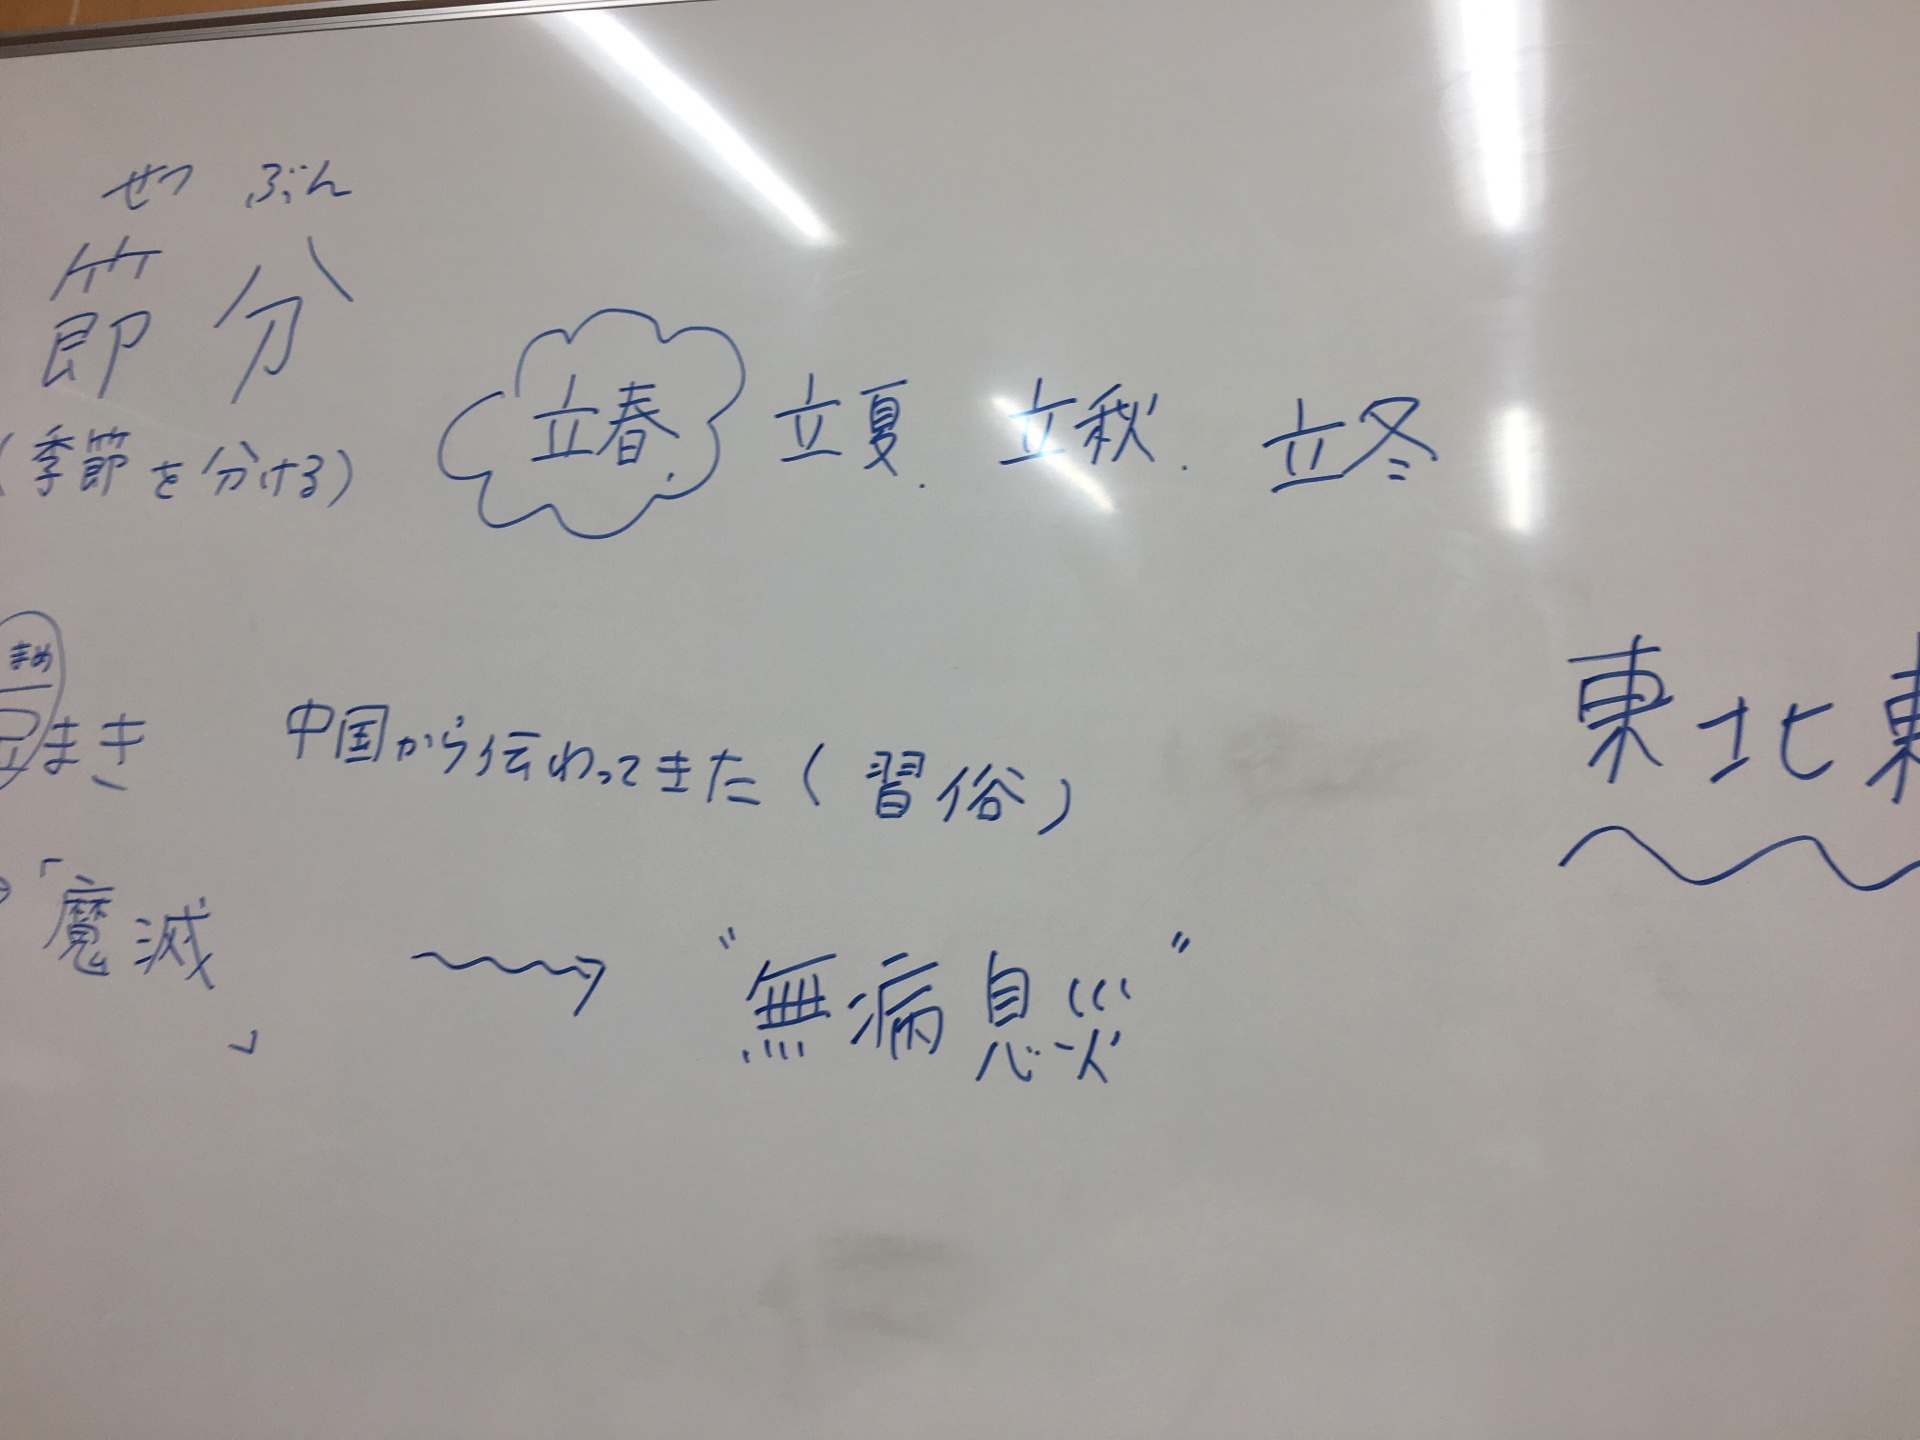 せつ ぶん
節分
(季節を分ける) 立春. 立夏. 立秋. 立冬
まめ
豆まき 中国から伝わってきた(習俗)
東北東
「魔滅」 → "無病息災"